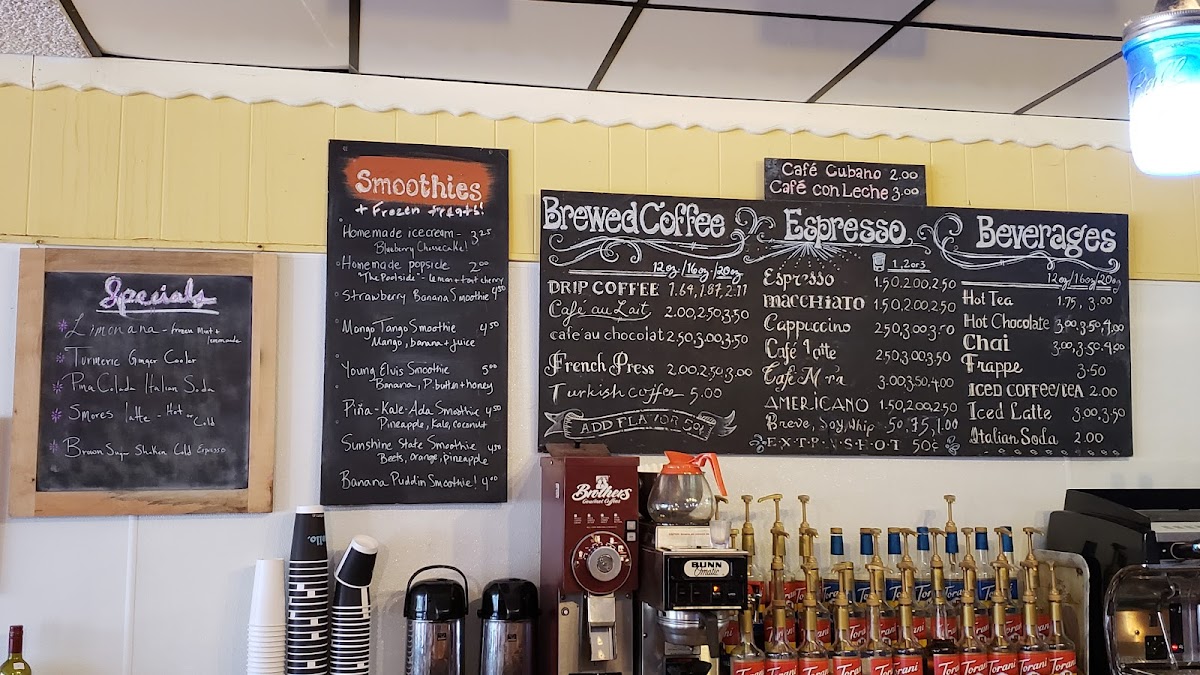 Specials
Limonana - frozen mint +
lemonade
Turmeric Ginger Cooler
Pina Colada Italian Soda
Smores latte - Hot or
Cold
Brown Sugar Shaken Cold Espresso
Smoothies
+ Frozen treats!
Homemade icecream - 3.25
Blueberry Cheesecake!
Homemade popsicle 2.00
"The Poolside" - Lemon + tart cherry
Strawberry Banana Smoothie 4.50
Mango Tango Smoothie 4.50
Mango, banana + juice
Young Elvis Smoothie 5.00
Banana, P. butter + honey
Piña-Kale-Ada Smoothie 4.50
Pineapple, Kale, coconut
Sunshine State Smoothie 4.50
Beets, orange, pineapple
Banana Puddin Smoothie! 4.00
Café Cubano 2.00
Café con Leche 3.00
Brewed Coffee
12oz/16oz/20oz
DRIP COFFEE 1.64, 1.87, 2.11
Café au Lait 2.00, 2.50, 3.50
café au chocolat 2.50, 3.00, 3.50
French Press 2.00, 2.50, 3.00
Turkish coffee 5.00
ADD FLAVOR 50¢
Espresso
1, 2 or 3
Espresso 1.50, 2.00, 2.50
macchiato 1.50, 2.00, 2.50
Cappuccino 2.50, 3.00, 3.50
Café Latte 2.50, 3.00, 3.50
Café 3.00, 3.50, 4.00
AMERICANO 1.50, 2.00, 2.50
Breve, Soy, Whip .50, .75, 1.00
EXTRA SHOT 50¢
Beverages
12oz/16oz/20oz
Hot Tea 1.75, 3.00
Hot Chocolate 3.00, 3.50, 4.00
Chai 3.00, 3.50, 4.00
Frappe 3.50
ICED COFFEE/TEA 2.00
Iced Latte 3.00, 3.50
Italian Soda 2.00
Brothers
Gourmet Coffees
BUNN
Omatic
Torani
Torani
Torani
Torani
Torani
Torani
Torani